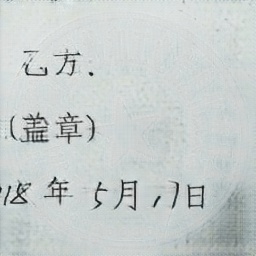 乙方.
(盖章)
018年5月17日